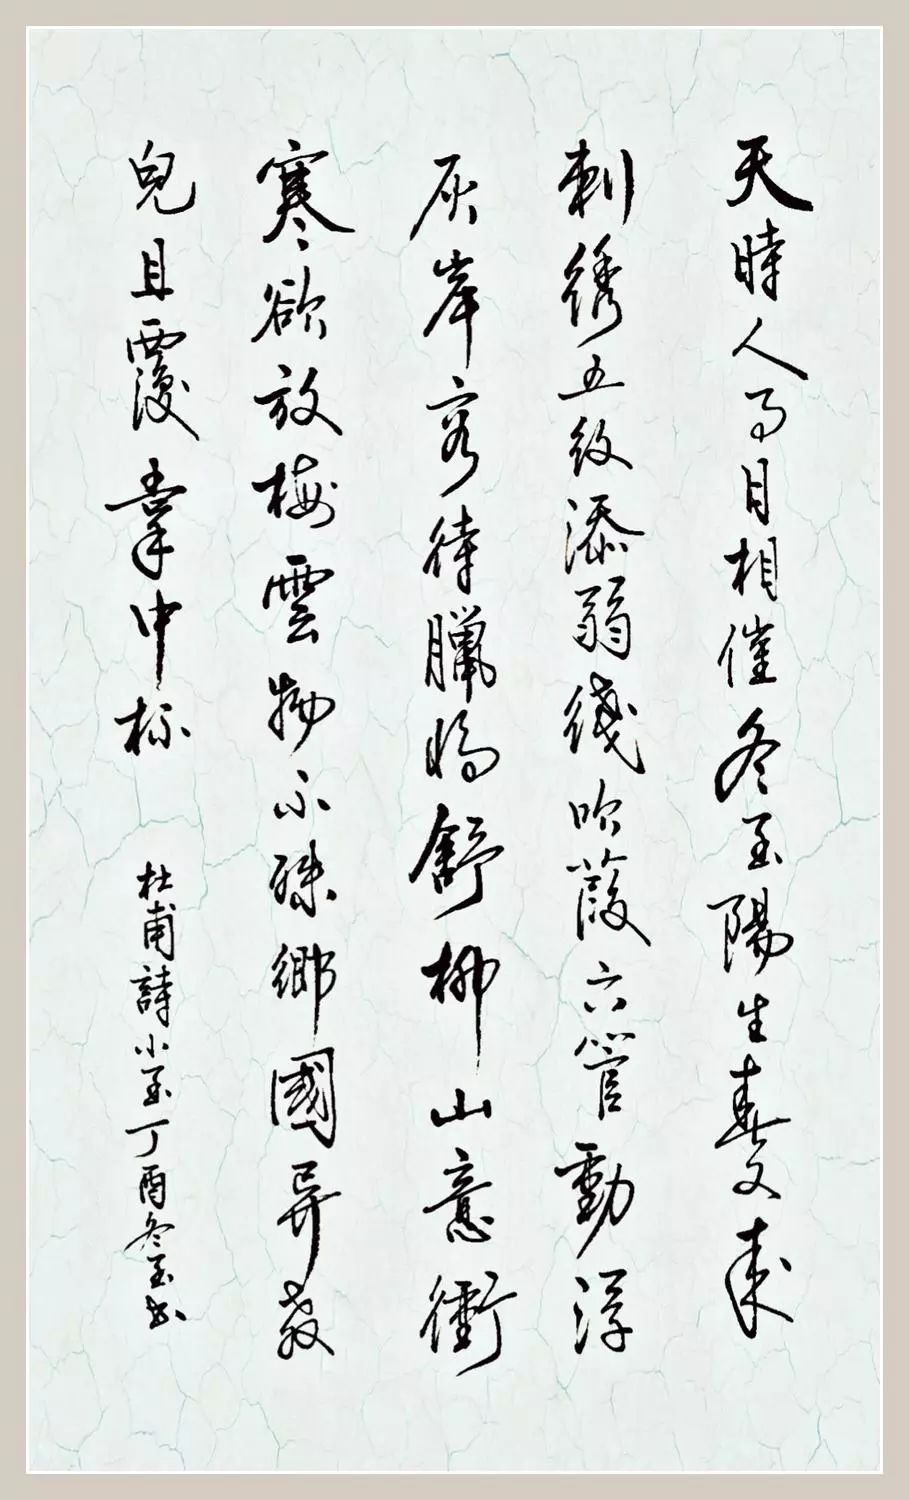 天時人事日相催冬至陽生春又來
刺綉五紋添弱綫吹葭六管動浮
灰岸容待臘將舒柳山意衝
寒欲放梅雲物不殊鄉國異教
兒且覆掌中杯
杜甫詩小至丁酉冬至書